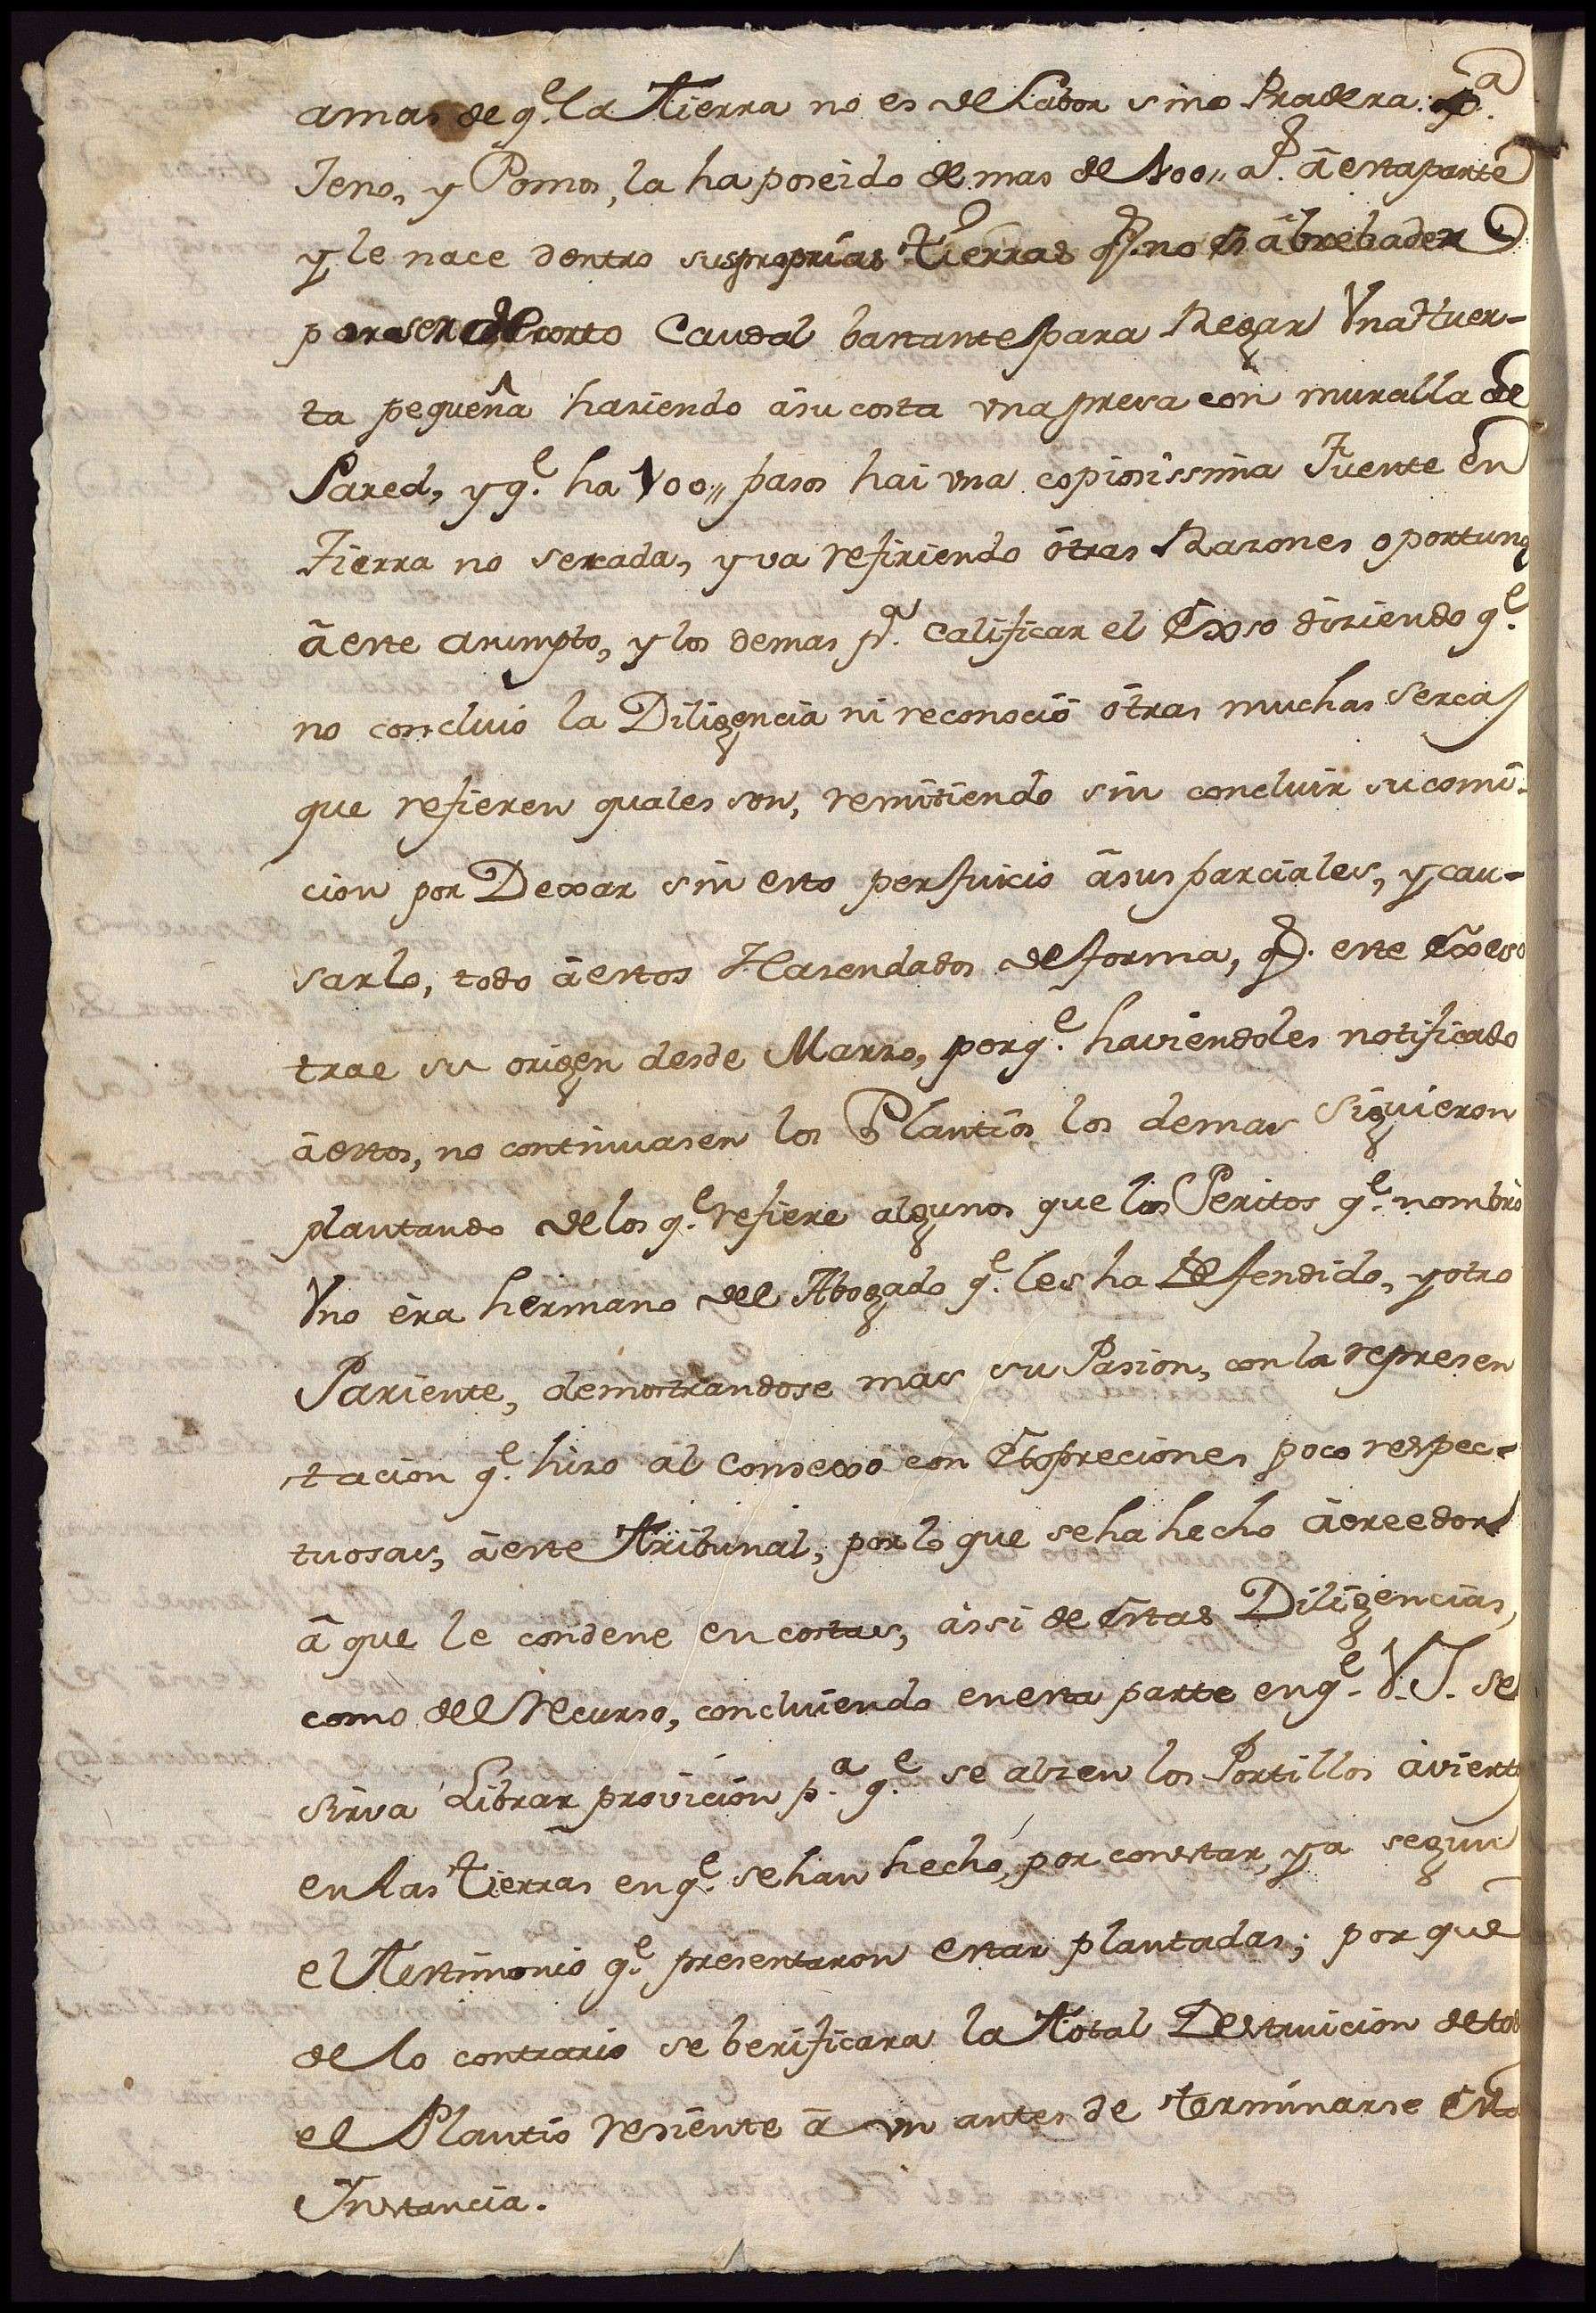 amas de q.e la Tierra no es de Labor sino Pradera p.a
Jeno, y Pomos, la ha poseido de mas de 100,, a.s â esta parte
y le nace dentro sus proprias tierras q.e no es âbrebader
por ser de corto Caudal bastante para Regar Vna Huer-
ta pequeña hasiendo âsu costa vna presa con muralla de
Pared, y q.e ha 100,, pasos hai vna copiosissima Fuente en
Tierra no sercada, y va refiriendo ôtras Rasones oportunas
â este asumpto, y los demas p.a Calificar el Exsso disiendo q.e
no concluió la Diligencia ni reconoció ôtras muchas sercas
que refieren quales son, remitiendo sin concluir su comi-
cion por Dexar sin esto perjuicio âsus parciales, y cau-
sarlo, todo âestos Hasendados de forma, q.e este Exeso
trae su origen desde Marso, porq.e haviendoles notificado
âestos, no continuasen los Plantíos, los demas siguieron
plantando de los q.e refiere algunos que los Peritos q.e nombró
Vno êra hermano del Abogado q.e les ha Defendido, y otro
Pariente, demostrandose mas su Pasion, con la represen
tacion q.e hiso al Consexo con Expreciones poco respec-
tuosas, âeste Tribunal, por lo que se ha hecho âcreedor
â que le condene en costas, âssi de êstas Diligencias,
como del Recurso, concluiendo en esta parte en q.e V.S. se
sirva Librar provicion p.a q.e se alzen los Portillos âviertos
en las tierras en q.e se han hechó, por constar, ya segun
el Testimonio q.e presentaron estar plantadas; por que
de lo contrario se berificara la Total Destruicion de todo
el Plantío resiente â vn antes de terminarse êsta
Instancia.